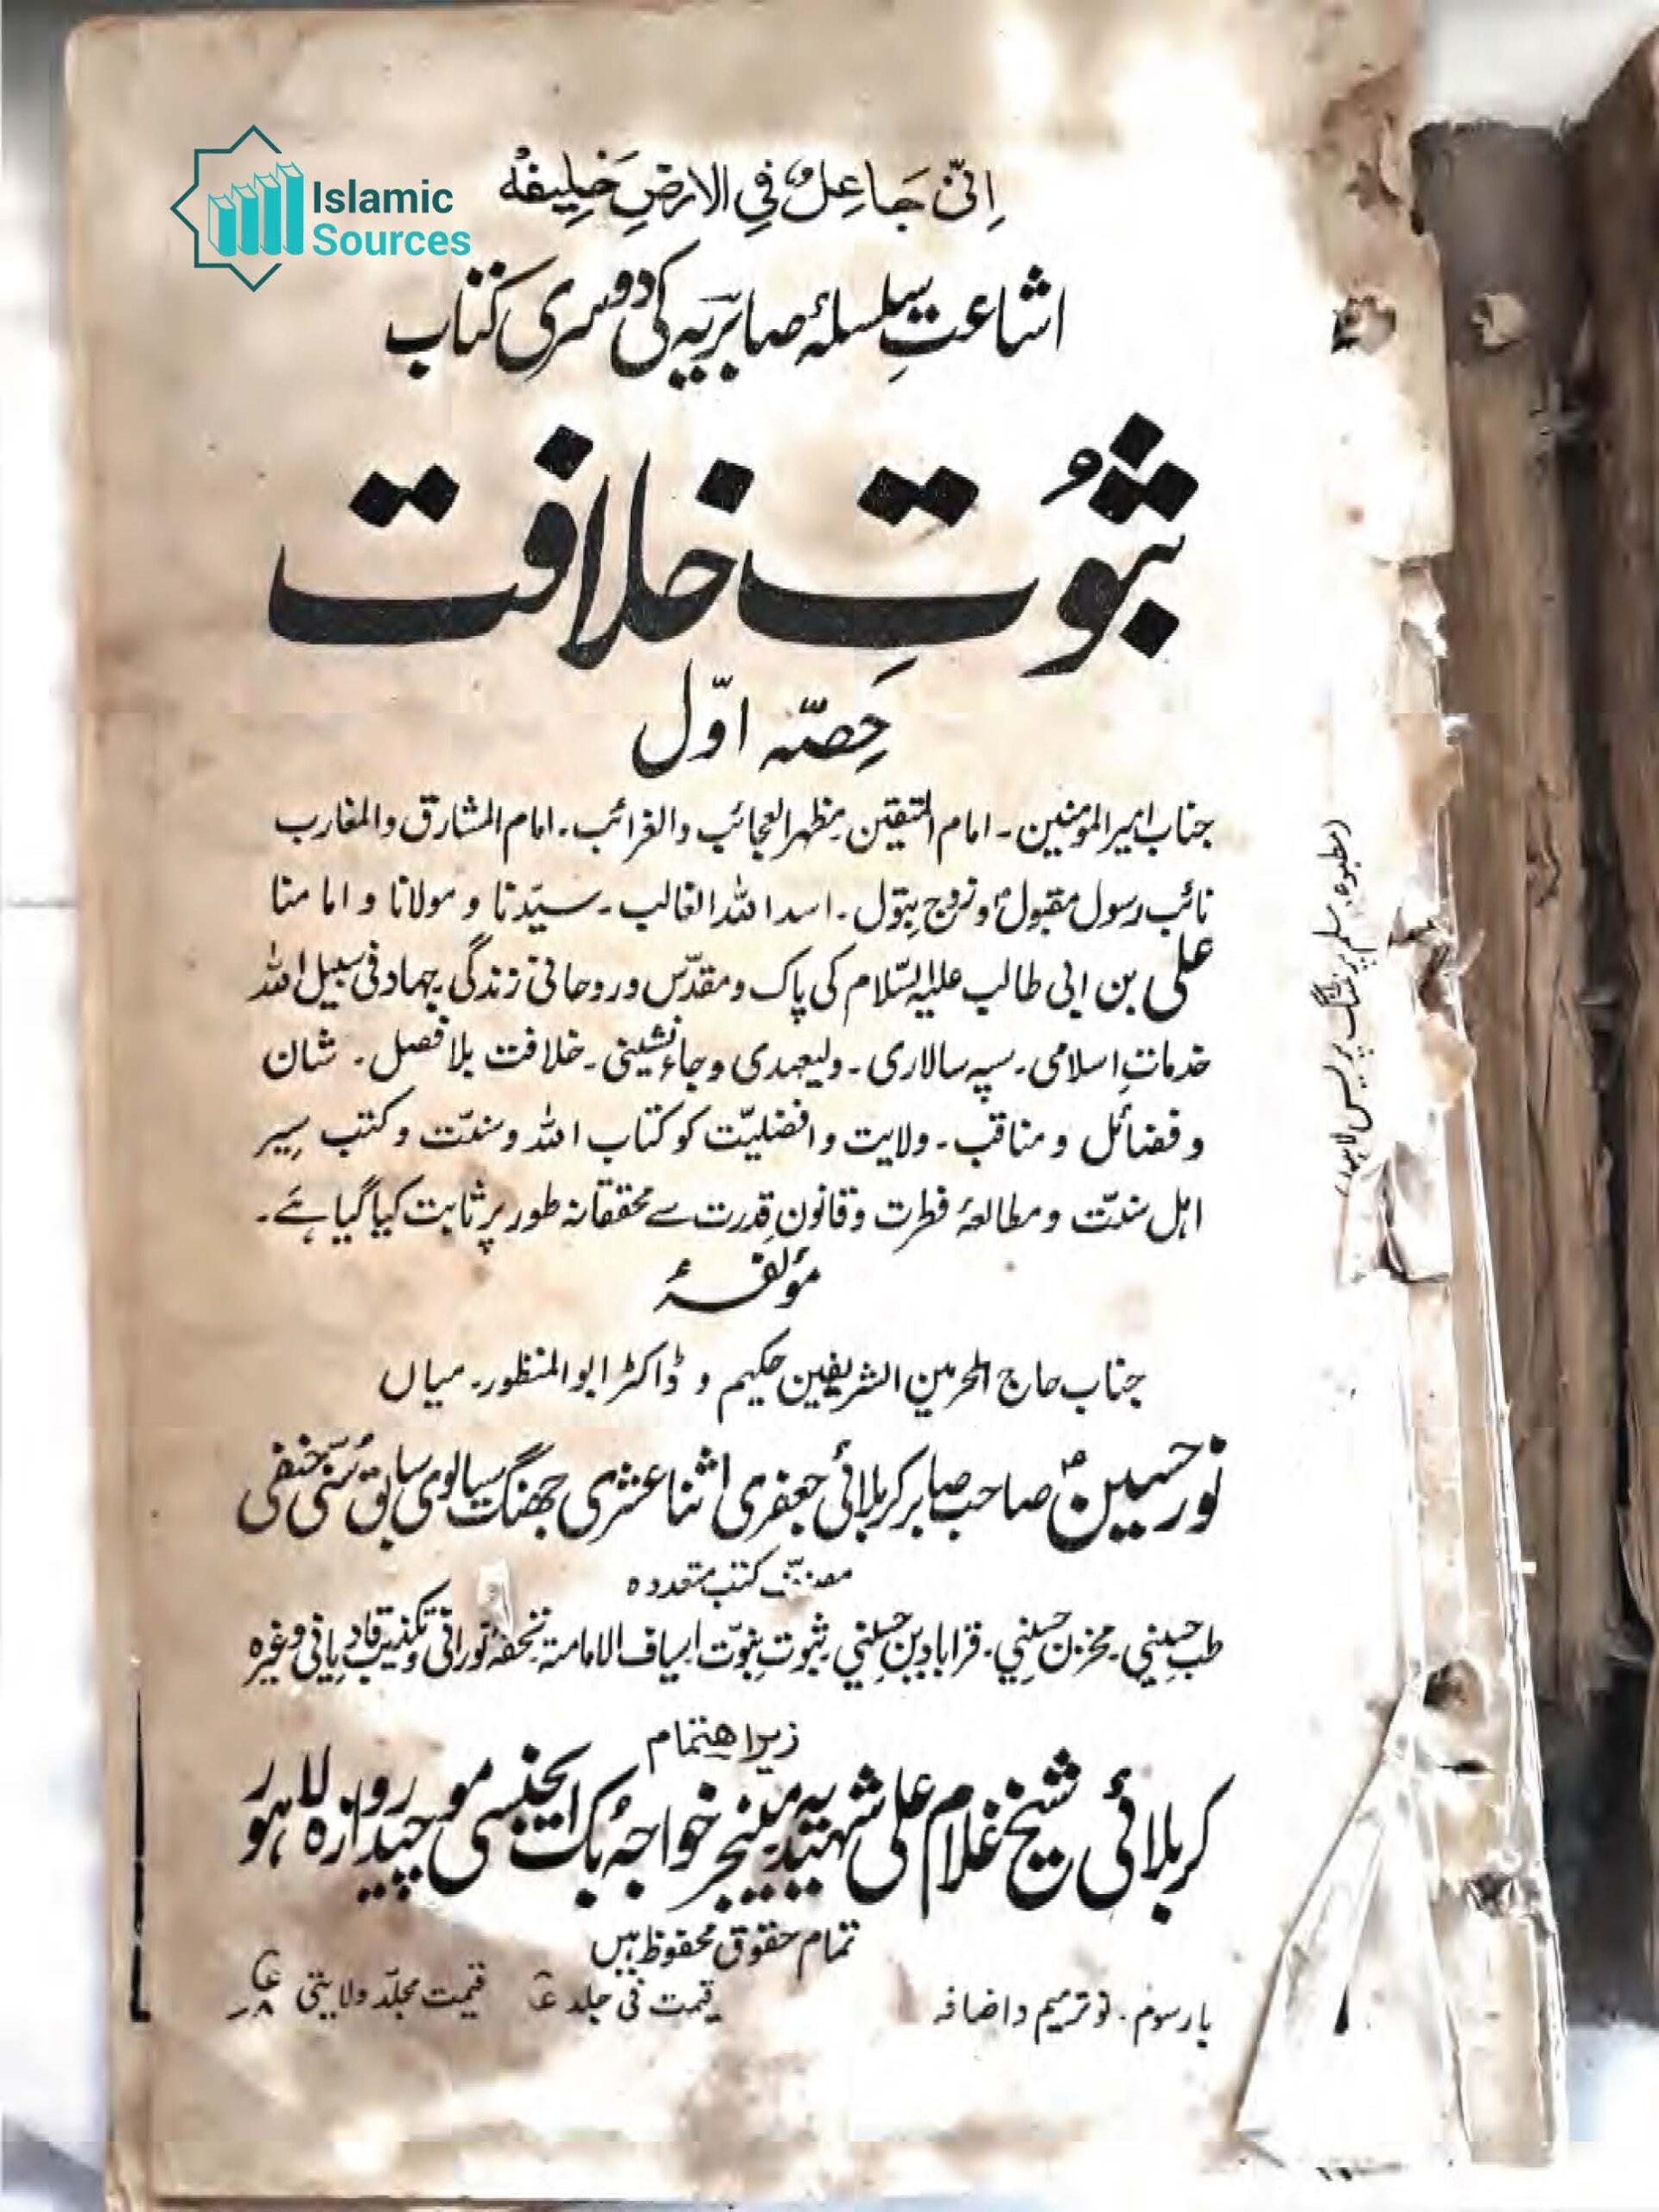 Islamic
Sources
اِنّی جَاعِلٌ فِی الارضِ خَلِیفه
اشاعتِ سِلسلۂ صابریّہ کی دوسری کتاب
ثبُوتِ خلافت
حِصّہ اوّل
جناب امیرالمومنین۔ امام المتقین۔ مظہر العجائب والغرائب۔ امام المشارق والمغارب
نائب رسول مقبولؐ و زوجِ بتول۔ اسد اللہ الغالب۔ سیّدنا و مولانا و امامنا
علی بن ابی طالب علیہ السّلام کی پاک و مقدّس و روحانی زندگی۔ جہاد فی سبیل اللہ
خدماتِ اسلامی۔ سپہ سالاری۔ ولیعہدی و جاءنشینی۔ خلافت بلا فصل۔ شان
و فضائل و مناقب۔ ولایت و افضلیّت کو کتاب اللہ و سنّت و کتب سِیر
اہل سنّت و مطالعۂ فطرت و قانونِ قدرت سے محققانہ طور پر ثابت کیا گیا ہَے۔
مؤلفۂ
جناب حاج الحرمین الشریفین حکیم و ڈاکٹر ابو المنظور۔ میاں
نور حسین صاحب صابر کربلائی جعفری اثنا عشری جھنگ سیالوی سابق سُنّی حنفی
مصنّف کتب متعددہ
طب حسینی۔ مخزن حسینی۔ قرابادین حسینی۔ ثبوتِ نبوّت۔ اسیاف الامامۃ۔ تحفۂ نورانی و تکذیب قادیانی وغیرہ
زیر اہتمام
کربلائی شیخ غلام علی شہیدیہ مینیجر خواجہ بُک ایجنسی موچیدروازہ لاہور
تمام حقوق محفوظ ہیں
بار سوم۔ نو ترمیم و اضافہ
قیمت فی جلد
قیمت مجلّد ولایتی
(مطبوعہ مسلم پرنٹنگ پریس لاہور)